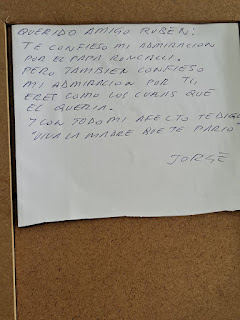 QUERIDO AMIGO RUBEN:
TE CONFIESO MI ADMIRACION
POR EL PAPA RONCALLI.
PERO TAMBIEN CONFIESO
MI ADMIRACION POR TI,
ERES COMO LOS CURAS QUE
EL QUERIA.
Y CON TODO MI AFECTO TE DIGO
"VIVA LA MADRE QUE TE PARIO"
JORGE